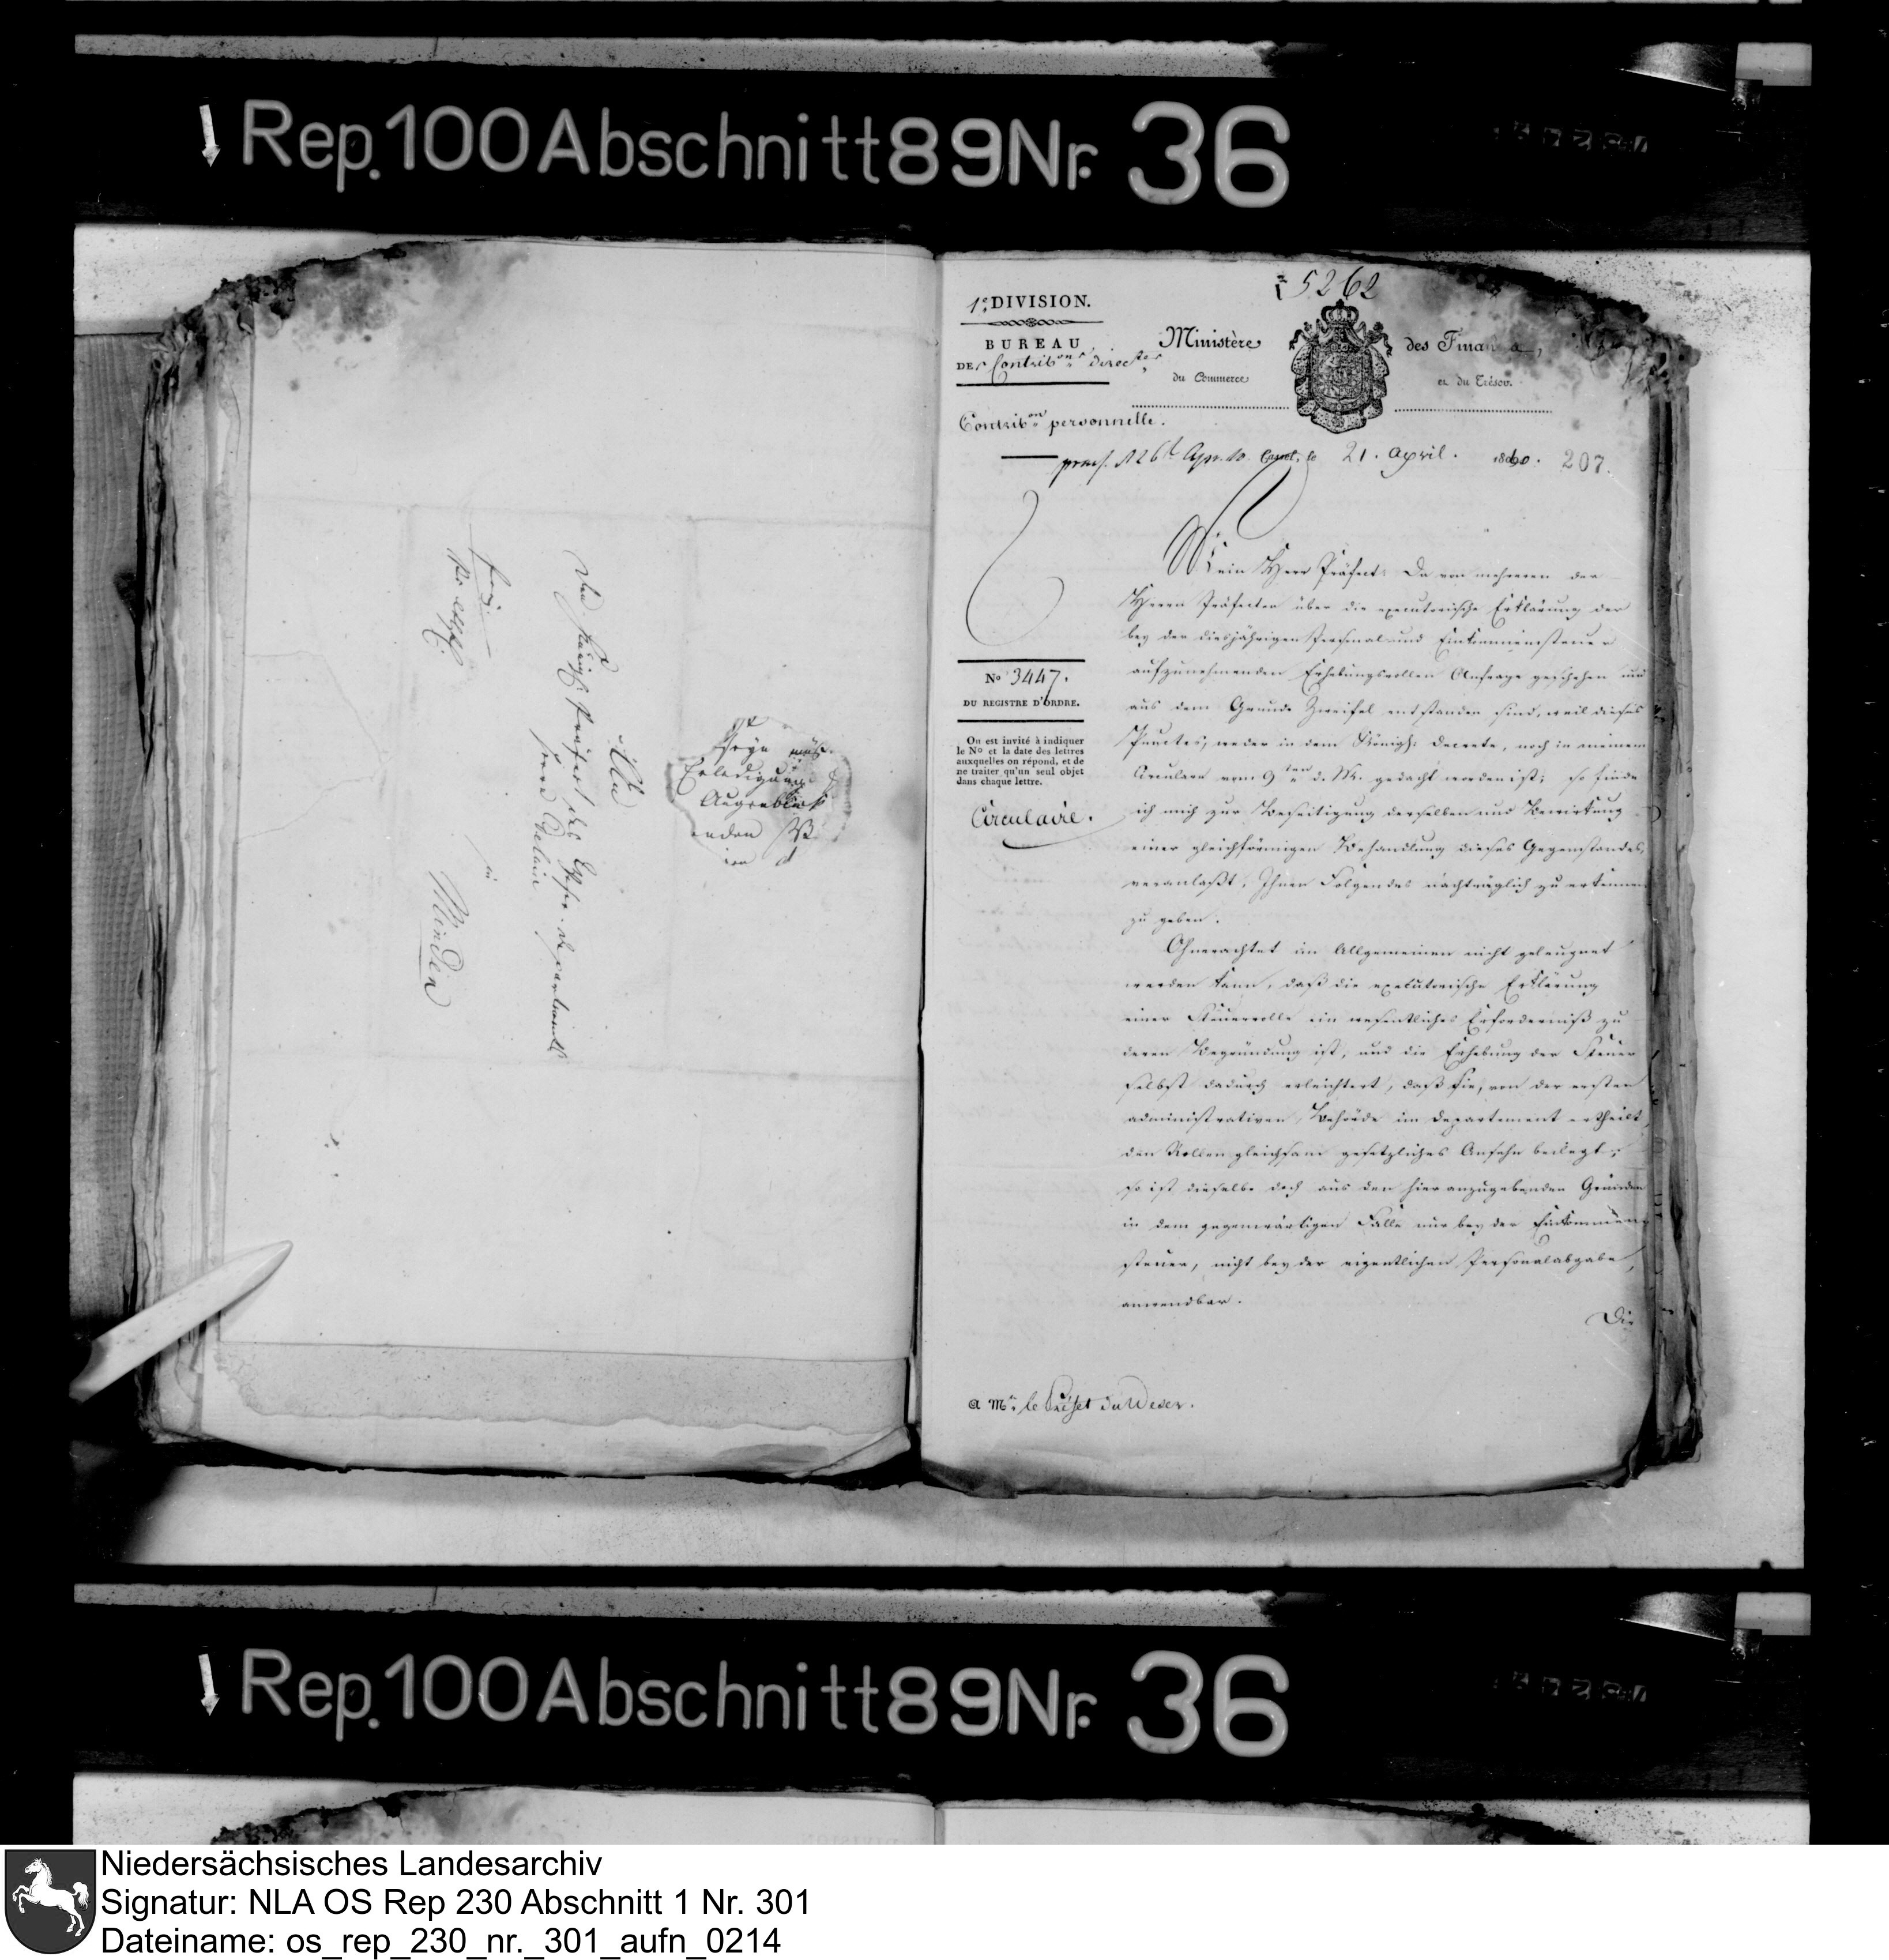 Rep. 100 Abschnitt 89 Nr. 36
An
den Königl. Präfect des Weser-departements
Herrn Delius
in
Minden
Erledigung
Augenblick
5262
1e. DIVISION.
BUREAU
DES Contribons. directes.
Ministère des Finances,
du Commerce et du Trésor.
Contribon. personnelle.
praes. d 26t Apr. 10. Cassel, le 21. April. 1810. 207.
Mein Herr Präfect! Da von mehreren der
Herren Präfecten über die executorische Erklärung der
bey der diesjährigen Personal- und Einkommensteuer
aufzunehmenden Erhebungsrollen Anfrage geschehen und
aus dem Grunde Zweifel entstanden sind, weil dieses
Punctes, weder in dem Königl. Decrete, noch in meinem
Circulare vom 9ten d. M. gedacht worden ist; so finde
ich mich zur Beseitigung derselben und Bewirkung
einer gleichförmigen Behandlung dieses Gegenstandes,
veranlaßt, Ihnen Folgendes nachträglich zu erkennen
zu geben.
Ohnerachtet im Allgemeinen nicht geleugnet
werden kann, daß die executorische Erklärung
einer Steuerrolle ein wesentliches Erforderniß zu
deren Begründung ist, und die Erhebung der Steuer
selbst dadurch erleichtert, daß sie, von der ersten
administrativen Behörde im Departement ertheilt,
den Rollen gleichsam gesetzliches Ansehn beilegt;
so ist dieselbe doch aus den hier anzugebenden Gründen
in dem gegenwärtigen Falle nur bey der Einkommen
steuer, nicht bey der eigentlichen Personalabgabe,
anwendbar.
Die
No 3447.
DU REGISTRE D'ORDRE.
On est invité à indiquer
le No et la date des lettres
auxquelles on répond, et de
ne traiter qu'un seul objet
dans chaque lettre.
Circulaire.
a Mr. le Préfet du Weser.
Rep. 100 Abschnitt 89 Nr. 36
Niedersächsisches Landesarchiv
Signatur: NLA OS Rep 230 Abschnitt 1 Nr. 301
Dateiname: os_rep_230_nr._301_aufn_0214